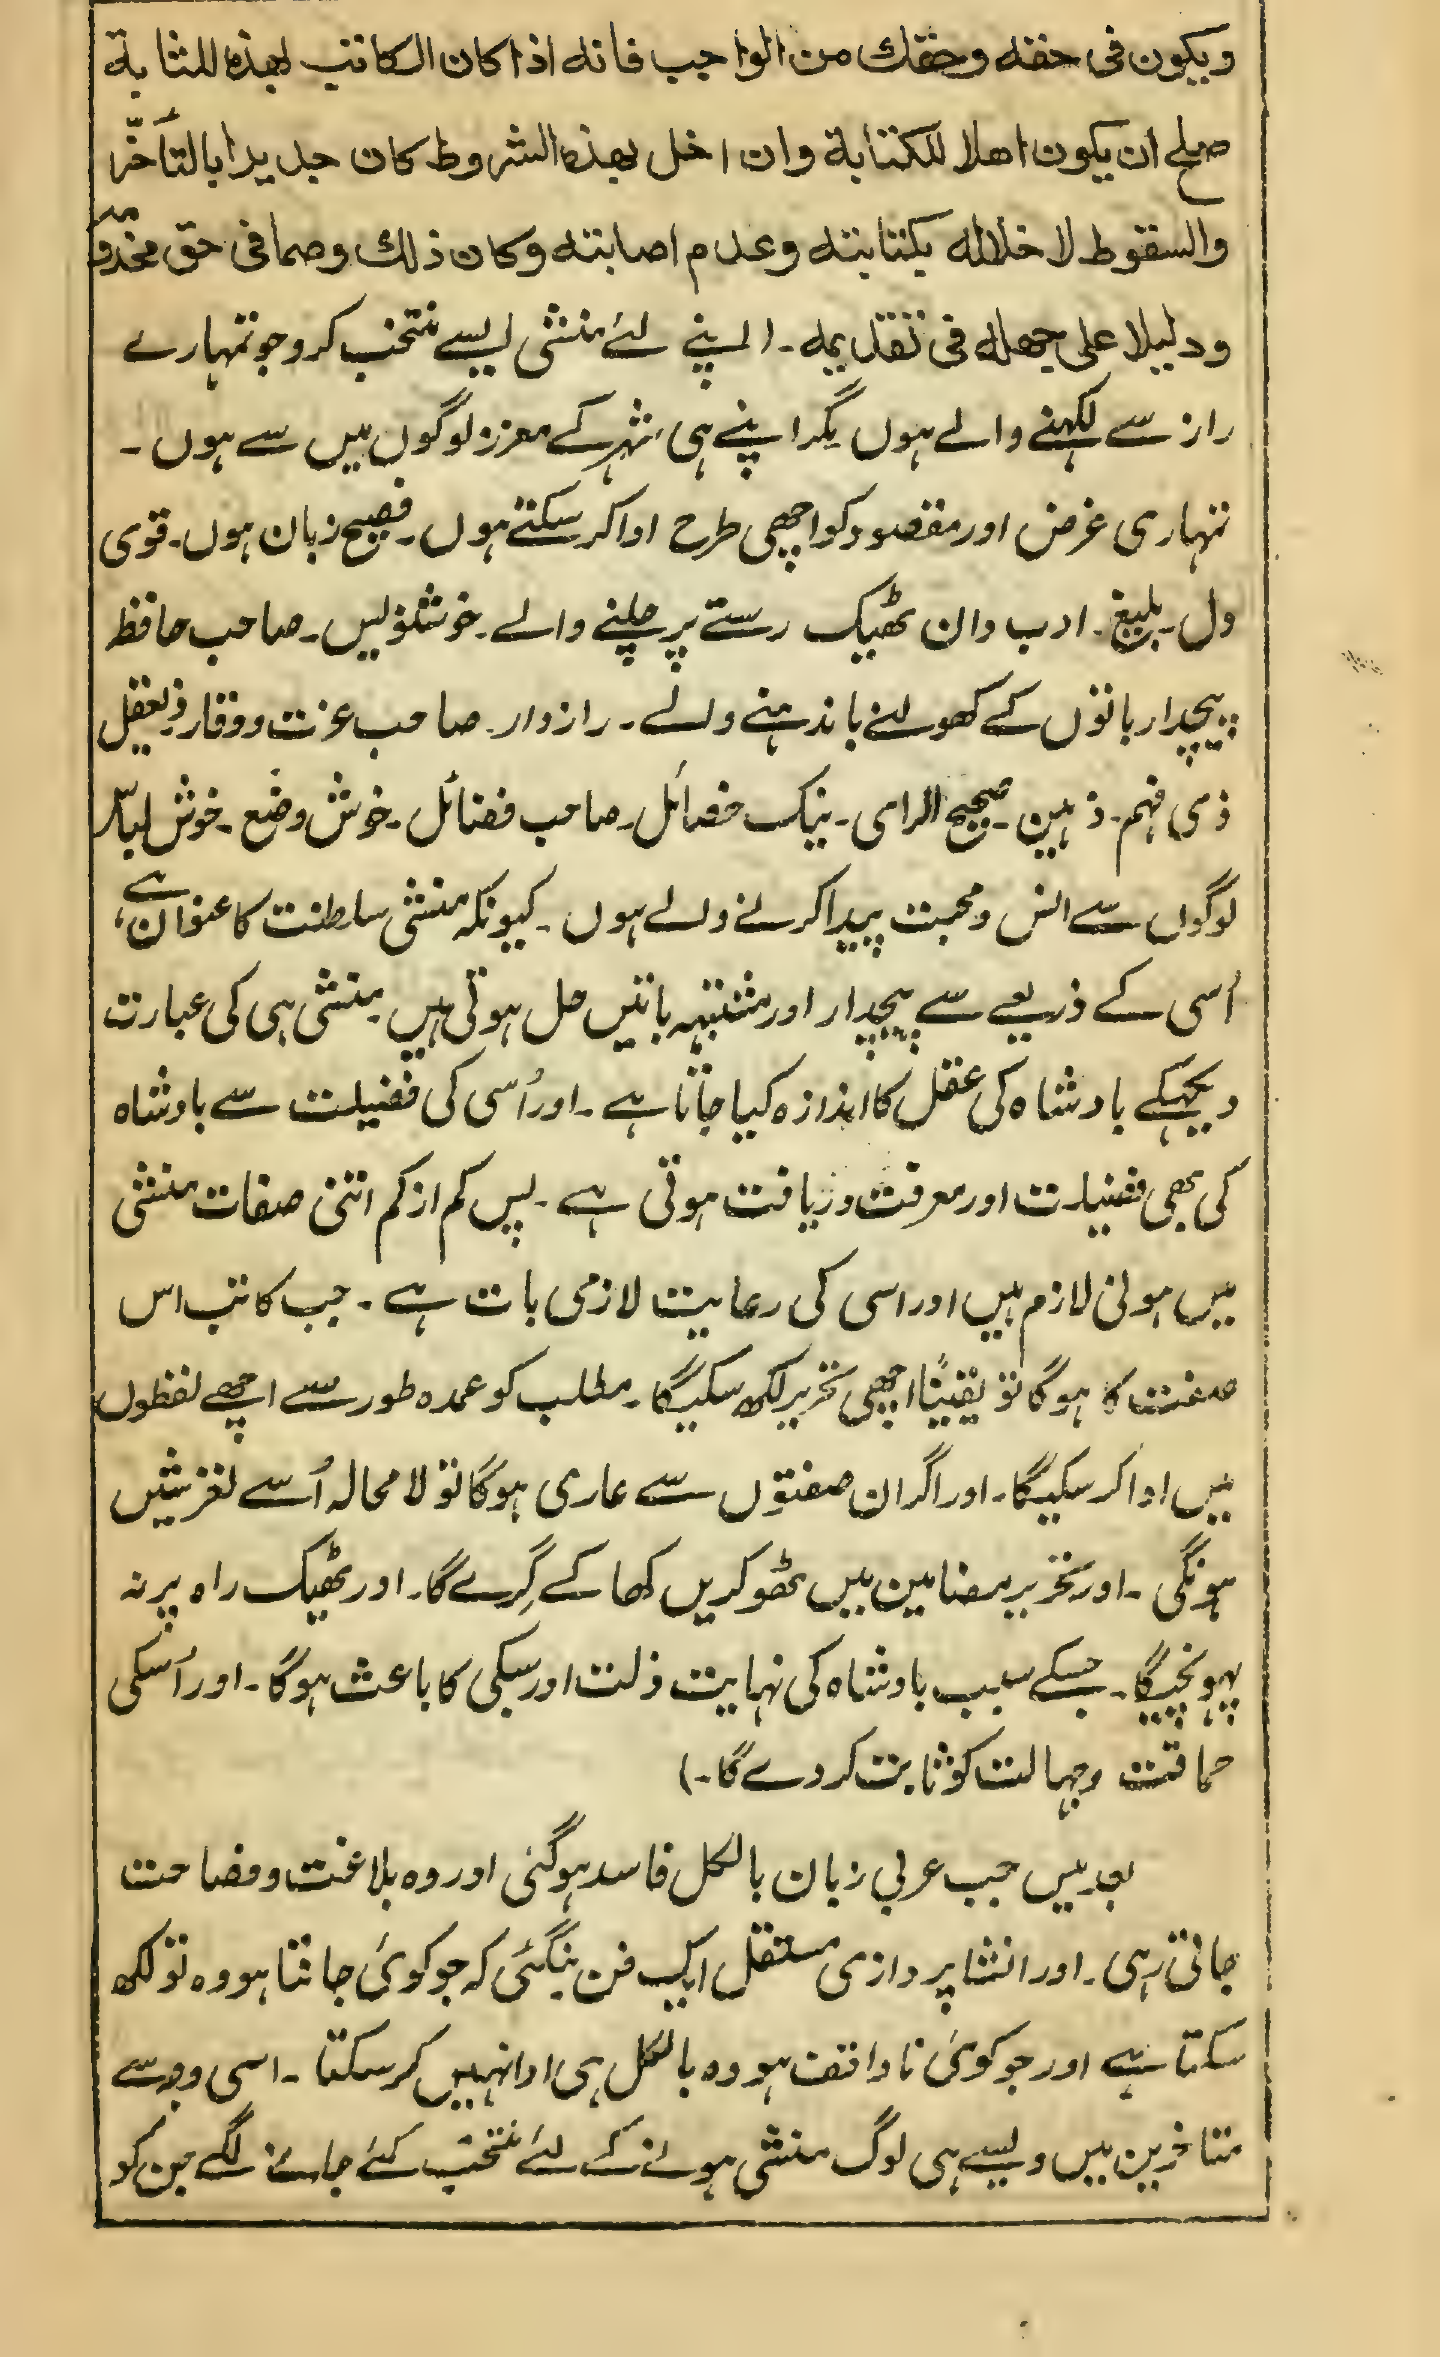 ويكون فى حقه وحقك من الواجب فانه اذا كان الكاتب بهذه المثابة
صلح ان يكون اهلا للكتابة وان اخل بهذه الشروط كان جديرا بالتأخّر
والسقوط لاخلاله بكتابته وعدم اصابته وكان ذلك وصما فى حق مخدومه
ودليلا على جهله فى تقديمه ۔ (اپنے لئے منشی ایسے منتخب کرو جو تمہارے
راز سے لکہنے والے ہوں مگر اپنے ہی شہر کے معزز لوگوں میں سے ہوں ۔
تمہاری غرض اور مقصود کو اچھی طرح ادا کر سکتے ہوں ۔ فصیح زبان ہوں ۔ قوی
دل ۔ بلیغ ۔ ادب دان ٹھیک رستے پر چلنے والے ۔ خوشنویس ۔ صاحب حافظہ
پیچدار باتوں کے کھولنے باندہنے والے ۔ رازدار ۔ صاحب عزت و وقار ذیعقل
ذی فہم ۔ ذہین ۔ صحیح الرای ۔ نیک خصائل ۔ صاحب فضائل ۔ خوش وضع ۔ خوش لباس
لوگوں سے انس و محبت پیدا کرنے والے ہوں ۔ کیونکہ منشی سلطنت کا عنوان ہے،
اُسی کے ذریعے سے پیچدار اور مشتبہہ باتیں حل ہوتی ہیں ۔ منشی ہی کی عبارت
دیکہکے بادشاہ کی عقل کا اندازہ کیا جاتا ہے ۔ اور اُسی کی فضیلت سے بادشاہ
کی بھی فضیلت اور معرفت دریافت ہوتی ہے ۔ پس کم از کم اتنی صفات منشی
میں ہونی لازم ہیں اور اسی کی رعایت لازمی بات ہے ۔ جب کاتب اس
صفت کا ہوگا تو یقیناً اچھی تحریر لکھ سکیگا ۔ مطلب کو عمدہ طور سے اچھے لفظوں
میں ادا کر سکیگا ۔ اور اگر ان صفتوں سے عاری ہوگا تو لا محالہ اُسے لغزشیں
ہونگی ۔ اور تحریر مضامین میں ٹھوکریں کھا کے گِرے گا ۔ اور ٹھیک راہ پر نہ
پہونچیگا ۔ جسکے سبب بادشاہ کی نہایت ذلت اور سبکی کا باعث ہوگا ۔ اور اُسکی
حماقت و جہالت کو ثابت کر دے گا ۔)
بعد میں جب عربی زبان بالکل فاسد ہو گئی اور وہ بلاغت و فصاحت
جاتی رہی ۔ اور انشا پردازی مستقل ایک فن بنگئی کہ جو کوئی جانتا ہو وہ تو لکھ
سکتا ہے اور جو کوئی ناواقف ہو وہ بالکل ہی ادا نہیں کر سکتا ۔ اسی وجہ سے
متاخرین میں ویسے ہی لوگ منشی ہونے کے لئے منتخب کئے جانے لگے جن کو